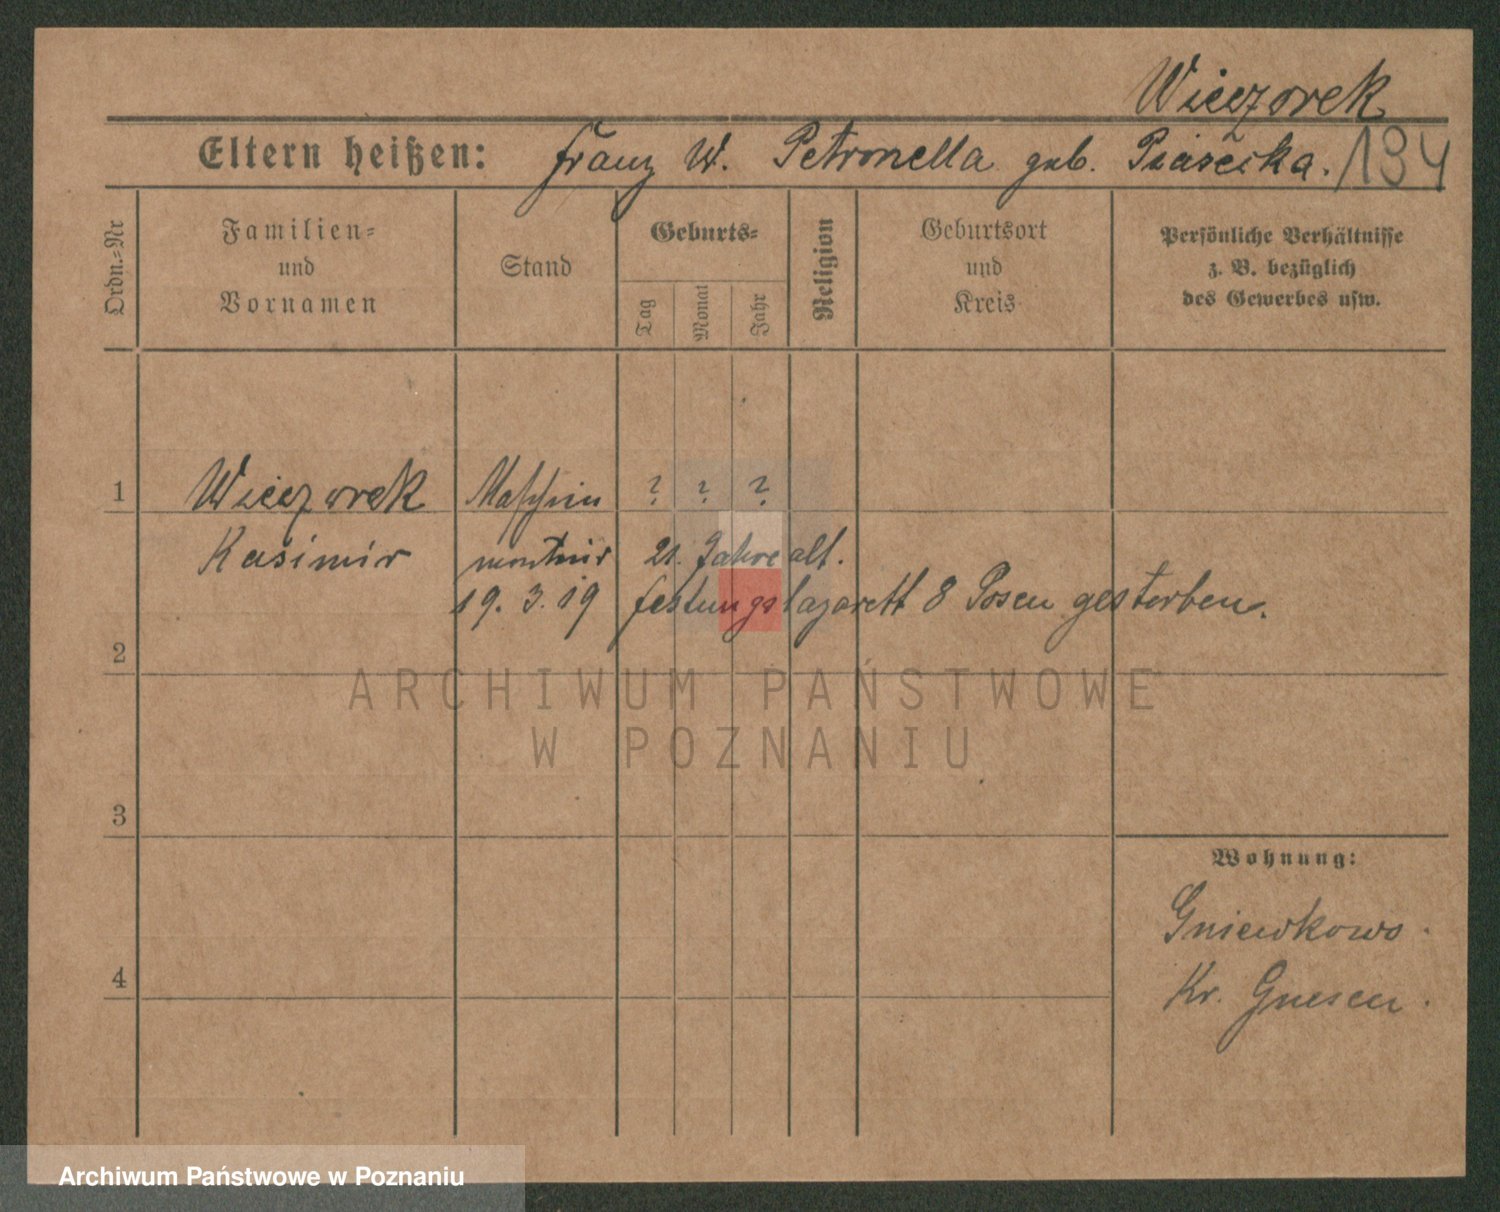 Wieczorek
Eltern heißen: Franz W. Petronella geb. Piasecka. 134
Ordn.-Nr
Familien-
und
Vornamen
Stand
Geburts-
Tag
Monat
Jahr
Religion
Geburtsort
und
Kreis
Persönliche Verhältnisse
z. B. bezüglich
des Gewerbes usw.
1 Wieczorek Maschin ? ? ?
Kasimir 21. Jahre alt.
19. 3. 19 Festungslazarett 8 Posen gestorben.
2
ARCHIWUM PAŃSTWOWE
W POZNANIU
3
Wohnung:
Gniewkowo.
4
Kr. Gnesen.
Archiwum Państwowe w Poznaniu